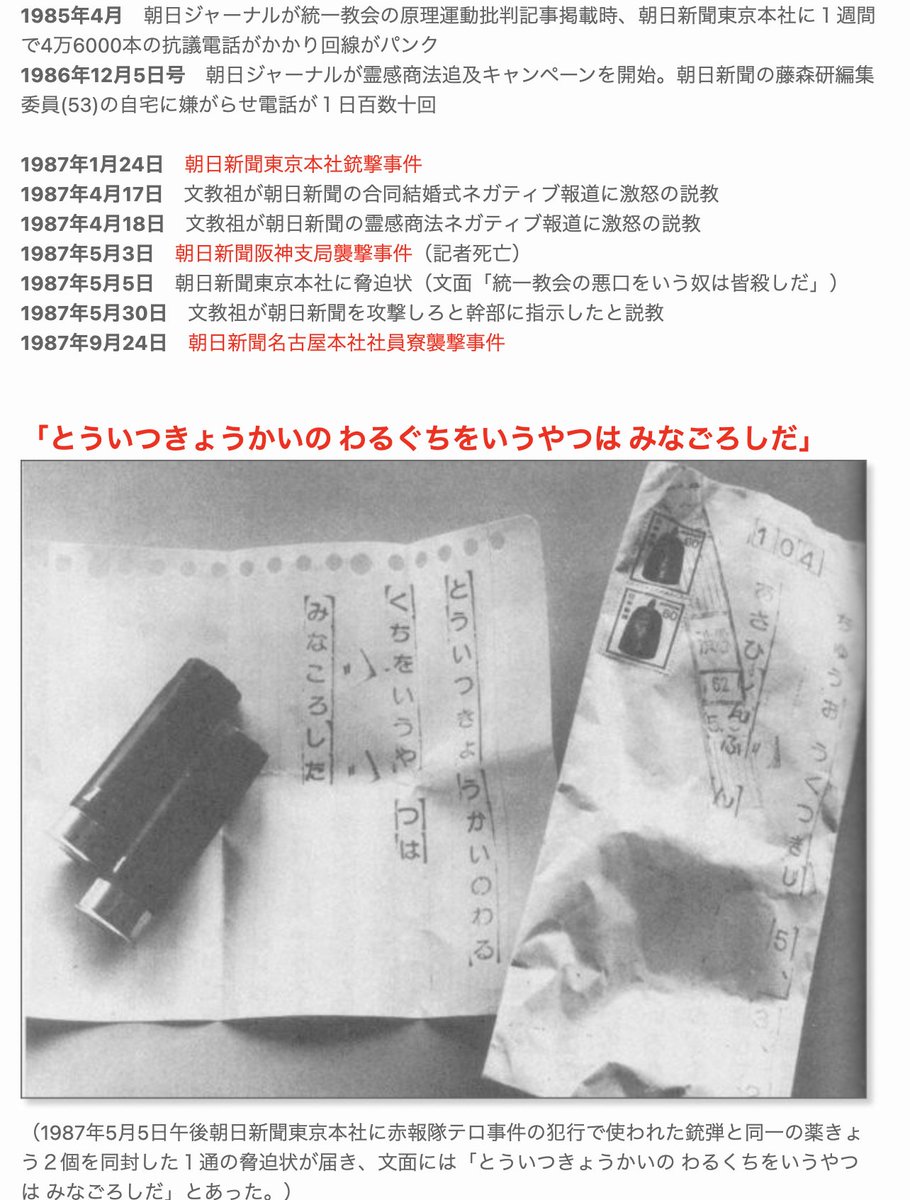 1985年4月　朝日ジャーナルが統一教会の原理運動批判記事掲載時、朝日新聞東京本社に１週間
で4万6000本の抗議電話がかかり回線がパンク
1986年12月5日号　朝日ジャーナルが霊感商法追及キャンペーンを開始。朝日新聞の藤森研編集
委員(53)の自宅に嫌がらせ電話が１日百数十回
1987年1月24日　朝日新聞東京本社銃撃事件
1987年4月17日　文教祖が朝日新聞の合同結婚式ネガティブ報道に激怒の説教
1987年4月18日　文教祖が朝日新聞の霊感商法ネガティブ報道に激怒の説教
1987年5月3日　朝日新聞阪神支局襲撃事件（記者死亡）
1987年5月5日　朝日新聞東京本社に脅迫状（文面「統一教会の悪口をいう奴は皆殺しだ」）
1987年5月30日　文教祖が朝日新聞を攻撃しろと幹部に指示したと説教
1987年9月24日　朝日新聞名古屋本社社員寮襲撃事件
「とういつきょうかいの わるぐちをいうやつは みなごろしだ」
とういつきょうかいのわる
くちをいうやつは
みなころしだ
104
あさひ
60
60
62
5、
3
（1987年5月5日午後朝日新聞東京本社に赤報隊テロ事件の犯行で使われた銃弾と同一の薬きょ
う２個を同封した１通の脅迫状が届き、文面には「とういつきょうかいの わるくちをいうやつ
は みなごろしだ」とあった。）